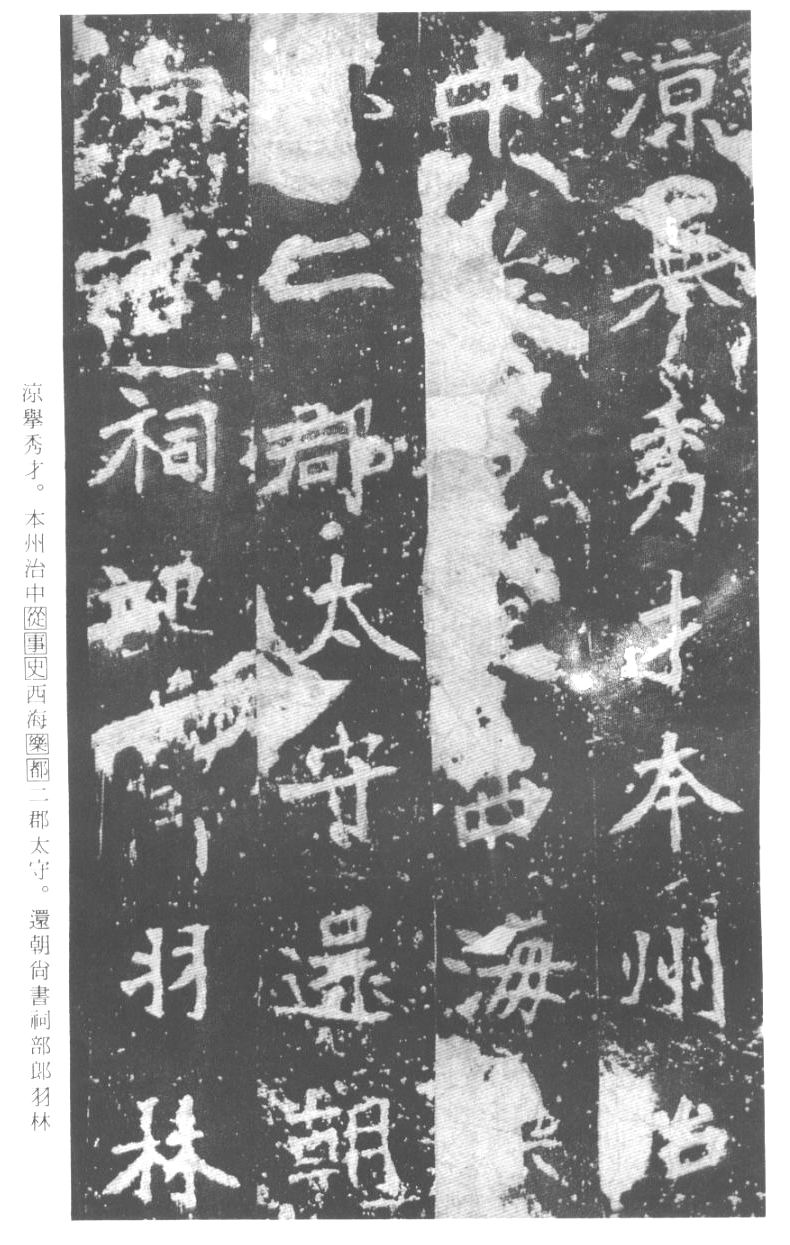 涼舉秀才本州治
中西海
二郡太守還朝
尚書祠部郎羽林
涼擧秀才。本州治中從事史西海樂都二郡太守。還朝尙書祠部郎羽林